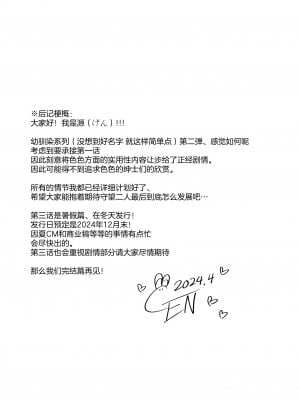 ※后记梗慨:
大家好！我是源（げん）!!!
幼馴染系列（没想到好名字 就这样简单点）第二弹、感觉如何呢
考虑到要承接第一话
因此刻意将色色方面的实用性内容让步给了正经剧情。
因此可能得不到追求色色的绅士们的欣赏。
所有的情节我都已经详细计划好了、
希望大家能抱着期待守望二人最后到底怎么发展吧…
第三话是暑假篇、在冬天发行！
发行日预定是2024年12月末！
因夏CM和商业稿等等的事情有点忙
会尽快出的。
第三话也会重视剧情部分请大家尽情期待
那么我们完结篇再见！
2024.4
GEN